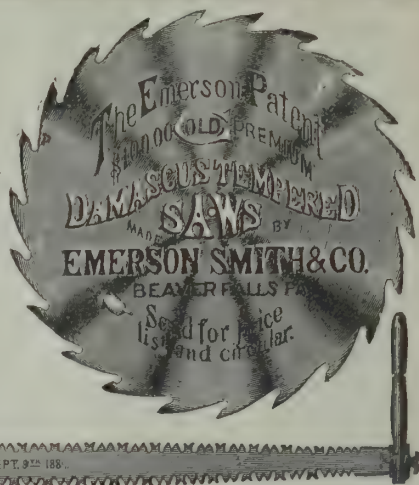 The Emerson Patent
$100.00 GOLD PREMIUM
DAMASCUS TEMPERED
SAWS
MADE BY
EMERSON SMITH & CO.
BEAVER FALLS PA
Send for Price
list and circular.
PT. 9TH 188